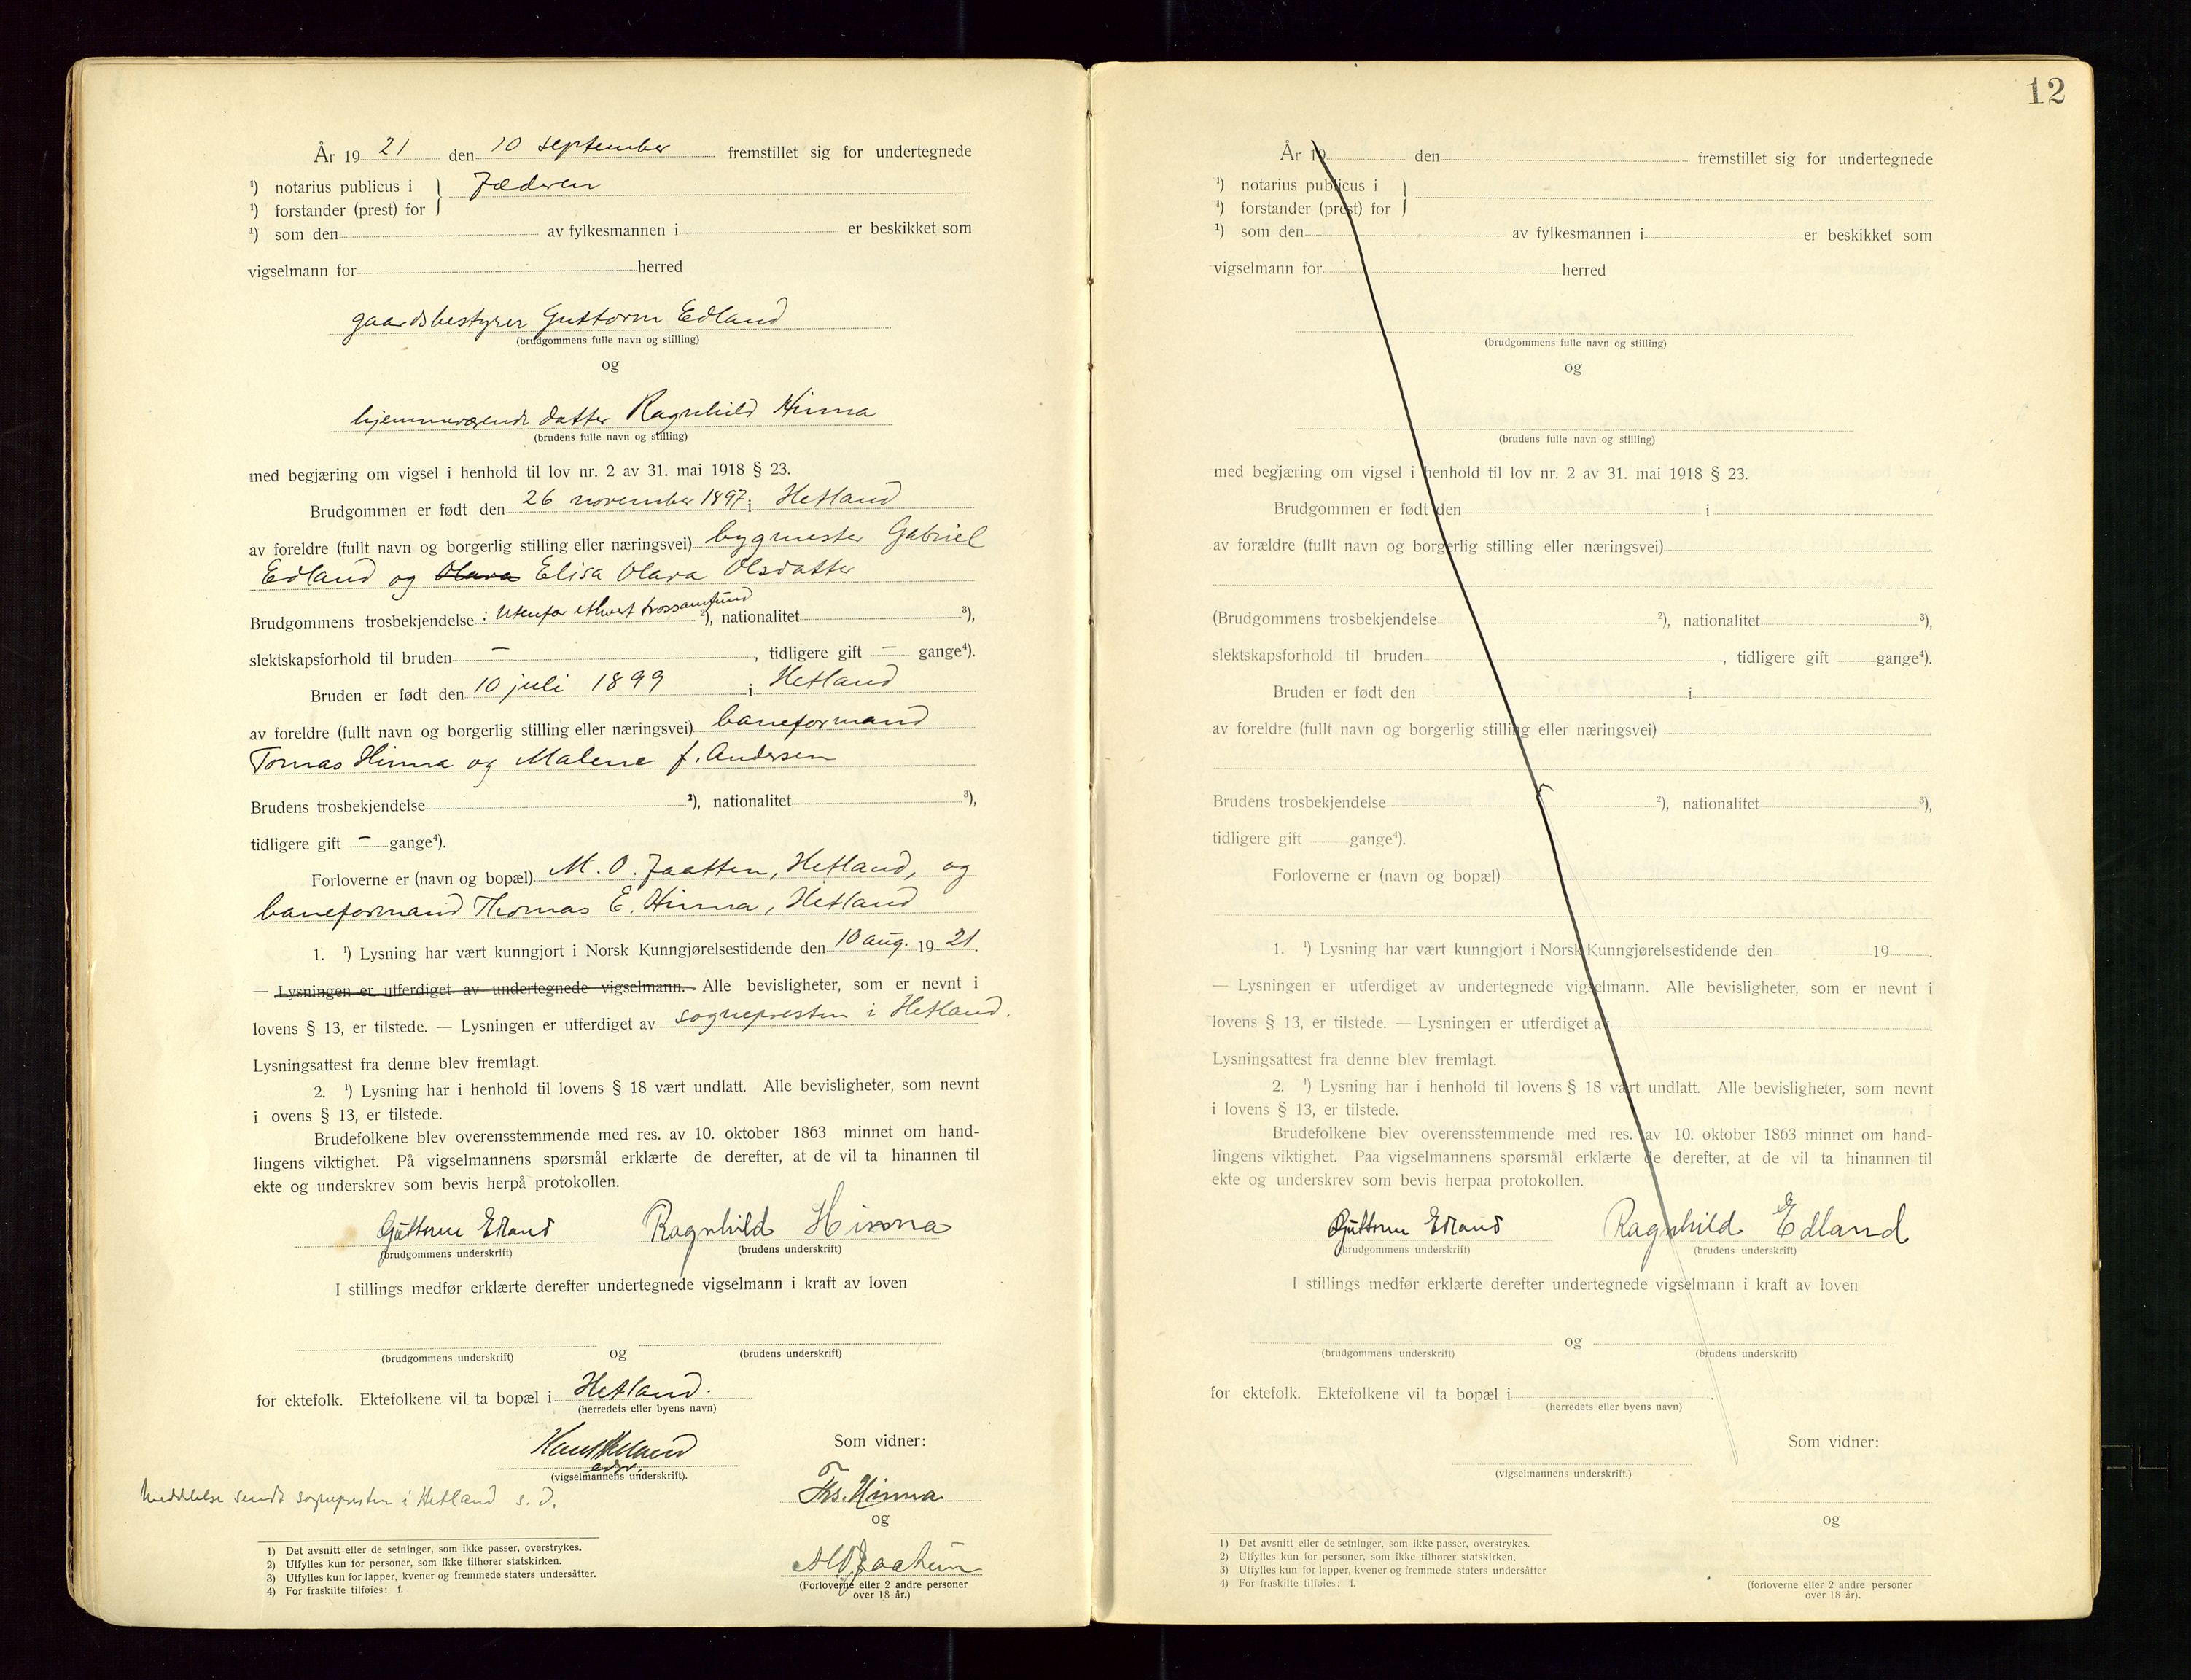 År 19 21 den 10 september fremstillet sig for undertegnede
¹) notarius publicus i } Jæderen
¹) forstander (prest) for
¹) som den av fylkesmannen i er beskikket som
vigselmann for herred
gaardsbestyrer Guttorm Edland
(brudgommens fulle navn og stilling)
og
hjemmeværende datter Ragnhild Hinna
(brudens fulle navn og stilling)
med begjæring om vigsel i henhold til lov nr. 2 av 31. mai 1918 § 23.
Brudgommen er født den 26 november 1897 i Hetland
av foreldre (fullt navn og borgerlig stilling eller næringsvei) bygmester Gabriel
Edland og Olava Elisa Olava Olsdatter
Brudgommens trosbekjendelse : Utenfor ethvert trossamfund ²), nationalitet ³),
slektskapsforhold til bruden — , tidligere gift — gange⁴).
Bruden er født den 10 juli 1899 i Hetland
av foreldre (fullt navn og borgerlig stilling eller næringsvei) baneformand
Tomas Hinna og Malene f. Andersen
Brudens trosbekjendelse ²), nationalitet ³),
tidligere gift — gange⁴).
Forloverne er (navn og bopæl) M. O. Jaatten, Hetland, og
baneformand Thomas E. Hinna, Hetland
1. ¹) Lysning har vært kunngjort i Norsk Kunngjørelsestidende den 10 aug. 19 21.
— Lysningen er utferdiget av undertegnede vigselmann. Alle bevisligheter, som er nevnt i
lovens § 13, er tilstede. — Lysningen er utferdiget av sognepresten i Hetland.
Lysningsattest fra denne blev fremlagt.
2. ¹) Lysning har i henhold til lovens § 18 vært undlatt. Alle bevisligheter, som nevnt
i ovens § 13, er tilstede.
Brudefolkene blev overensstemmende med res. av 10. oktober 1863 minnet om hand-
lingens viktighet. På vigselmannens spørsmål erklærte de derefter, at de vil ta hinannen til
ekte og underskrev som bevis herpå protokollen.
Guttorm Edland Ragnhild Hinna
(brudgommens underskrift) (brudens underskrift)
I stillings medfør erklærte derefter undertegnede vigselmann i kraft av loven
og
(brudgommens underskrift) (brudens underskrift)
for ektefolk. Ektefolkene vil ta bopæl i Hetland.
(herredets eller byens navn)
Som vidner:
(vigselmannens underskrift).
Ths. Hinna
Meddelelse sendt sognepresten i Hetland s. D.
og
M O Jaatten
(Forloverne eller 2 andre personer
over 18 år.)
1) Det avsnitt eller de setninger, som ikke passer, overstrykes.
2) Utfylles kun for personer, som ikke tilhører statskirken.
3) Utfylles kun for lapper, kvener og fremmede staters undersåtter.
4) For fraskilte tilføies: f.
12
År 19 den fremstillet sig for undertegnede
¹) notarius publicus i }
¹) forstander (prest) for
¹) som den av fylkesmannen i er beskikket som
vigselmann for herred
(brudgommens fulle navn og stilling)
og
(brudens fulle navn og stilling)
med begjæring om vigsel i henhold til lov nr. 2 av 31. mai 1918 § 23.
Brudgommen er født den i
av forældre (fullt navn og borgerlig stilling eller næringsvei)
(Brudgommens trosbekjendelse ²), nationalitet ³),
slektskapsforhold til bruden , tidligere gift gange⁴).
Bruden er født den i
av foreldre (fullt navn og borgerlig stilling eller næringsvei)
Brudens trosbekjendelse ²), nationalitet ³),
tidligere gift gange⁴).
Forloverne er (navn og bopæl)
1. ¹) Lysning har vært kunngjort i Norsk Kunngjørelsestidende den 19 .
— Lysningen er utferdiget av undertegnede vigselmann. Alle bevisligheter, som er nevnt i
lovens § 13, er tilstede. — Lysningen er utferdiget av .
Lysningsattest fra denne blev fremlagt.
2. ¹) Lysning har i henhold til lovens § 18 vært undlatt. Alle bevisligheter, som nevnt
i lovens § 13, er tilstede.
Brudefolkene blev overensstemmende med res. av 10. oktober 1863 minnet om hand-
lingens viktighet. Paa vigselmannens spørsmål erklærte de derefter, at de vil ta hinannen til
ekte og underskrev som bevis herpaa protokollen.
Guttorm Edland Ragnhild Edland
(brudgommens underskrift) (brudens underskrift)
I stillings medfør erklærte derefter undertegnede vigselmann i kraft av loven
og
(brudgommens underskrift) (brudens underskrift)
for ektefolk. Ektefolkene vil ta bopæl i .
(herredets eller byens navn)
Som vidner:
(vigselmannens underskrift.)
og
(forloverne eller 2 andre personer
over 18 år).
1) Det avsnitt eller de setninger, som ikke passer, overstrykes.
2) Utfylles kun for personer, som ikke tilhører statskirken.
3) Utfylles kun for lapper, kvener og fremmede staters undersåtter
4) For fraskilte tilføies: f.